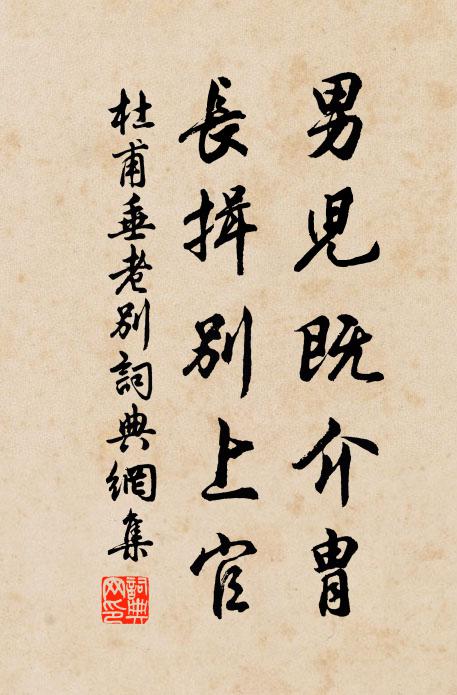 男児既介胄
長揖別上官
杜甫垂老別詞典網集
詞典網印